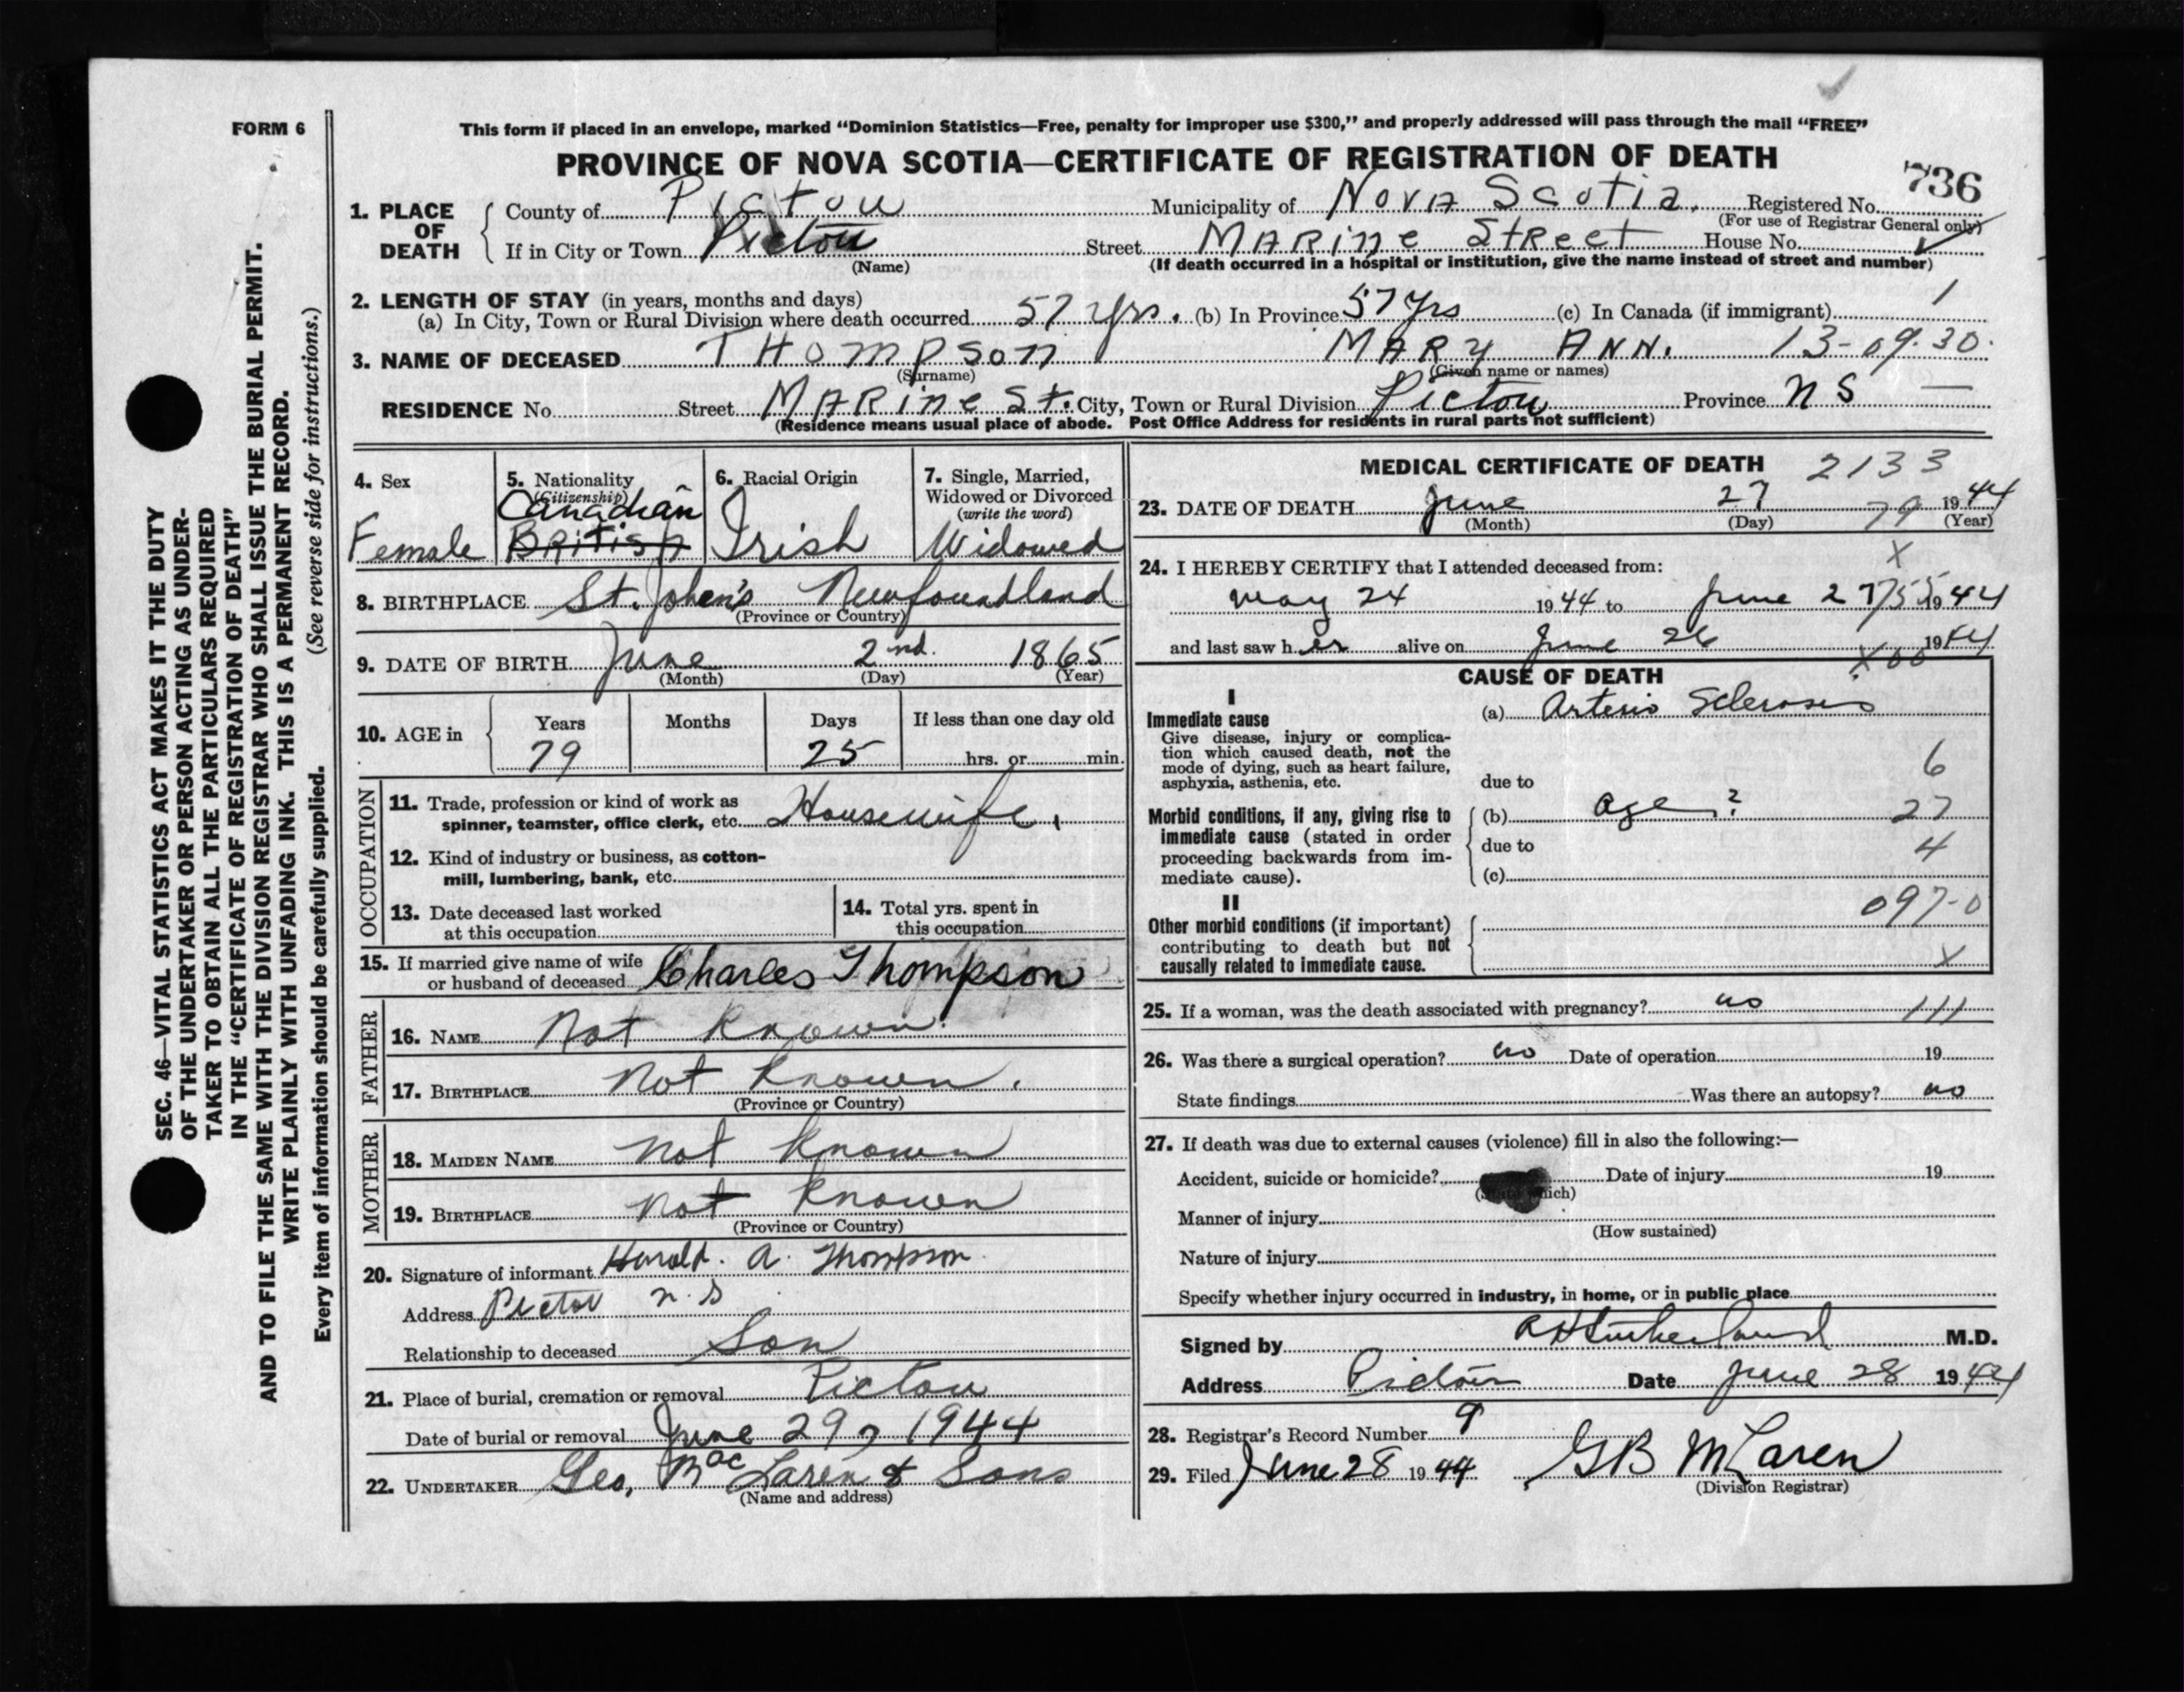 FORM 6
This form if placed in an envelope, marked "Dominion Statistics—Free, penalty for improper use $300," and properly addressed will pass through the mail "FREE"
PROVINCE OF NOVA SCOTIA—CERTIFICATE OF REGISTRATION OF DEATH
736
1. PLACE OF DEATH
County of Pictou Municipality of Nova Scotia. Registered No.
(For use of Registrar General only)
If in City or Town Pictou Street Marine Street House No.
(Name)
(If death occurred in a hospital or institution, give the name instead of street and number)
2. LENGTH OF STAY (in years, months and days)
(a) In City, Town or Rural Division where death occurred 57 yrs. (b) In Province 57 yrs (c) In Canada (if immigrant) 1
3. NAME OF DECEASED THOMPSON MARY ANN. 13-09.30.
(Surname) (Given name or names)
RESIDENCE No. Street Marine St. City, Town or Rural Division Pictou Province N S —
(Residence means usual place of abode. Post Office Address for residents in rural parts not sufficient)
4. Sex
Female
5. Nationality
(Citizenship)
Canadian
British
6. Racial Origin
Irish
7. Single, Married,
Widowed or Divorced
(write the word)
Widowed
8. BIRTHPLACE St. John's Newfoundland
(Province or Country)
9. DATE OF BIRTH June 2nd. 1865
(Month) (Day) (Year)
10. AGE in
Years Months Days If less than one day old
79 25 hrs. or min.
OCCUPATION
11. Trade, profession or kind of work as
spinner, teamster, office clerk, etc. Housewife.
12. Kind of industry or business, as cotton-
mill, lumbering, bank, etc.
13. Date deceased last worked
at this occupation
14. Total yrs. spent in
this occupation
15. If married give name of wife
or husband of deceased Charles Thompson
FATHER
16. NAME Not Known.
17. BIRTHPLACE Not Known.
(Province or Country)
MOTHER
18. MAIDEN NAME Not Known
19. BIRTHPLACE Not Known
(Province or Country)
20. Signature of informant Harold. A. Thompson
Address Pictou N.S
Relationship to deceased Son
21. Place of burial, cremation or removal Pictou
Date of burial or removal June 29, 1944
22. UNDERTAKER Geo. MacLaren & Sons
(Name and address)
MEDICAL CERTIFICATE OF DEATH 2133
23. DATE OF DEATH June 27 1944
(Month) (Day) 79 (Year)
X
24. I HEREBY CERTIFY that I attended deceased from:
May 24 1944 to June 27 1944
and last saw her alive on June 26 1944
X00
CAUSE OF DEATH
I
Immediate cause
Give disease, injury or complica-
tion which caused death, not the
mode of dying, such as heart failure,
asphyxia, asthenia, etc.
(a) Arterio Sclerosis
6
due to
Morbid conditions, if any, giving rise to
immediate cause (stated in order
proceeding backwards from im-
mediate cause).
(b) age? 27
due to 4
(c)
II
097-0
Other morbid conditions (if important)
contributing to death but not
causally related to immediate cause.
X
25. If a woman, was the death associated with pregnancy? no 111
26. Was there a surgical operation? no Date of operation 19
State findings Was there an autopsy? no
27. If death was due to external causes (violence) fill in also the following:—
Accident, suicide or homicide? Date of injury 19
Manner of injury
(How sustained)
Nature of injury
Specify whether injury occurred in industry, in home, or in public place
Signed by Sutherland M.D.
Address Pictou Date June 28 1944
28. Registrar's Record Number 9
29. Filed June 28 1944 GB McLaren
(Division Registrar)
SEC. 46—VITAL STATISTICS ACT MAKES IT THE DUTY
OF THE UNDERTAKER OR PERSON ACTING AS UNDER-
TAKER TO OBTAIN ALL THE PARTICULARS REQUIRED
IN THE "CERTIFICATE OF REGISTRATION OF DEATH"
AND TO FILE THE SAME WITH THE DIVISION REGISTRAR WHO SHALL ISSUE THE BURIAL PERMIT.
WRITE PLAINLY WITH UNFADING INK. THIS IS A PERMANENT RECORD.
Every item of information should be carefully supplied. (See reverse side for instructions.)